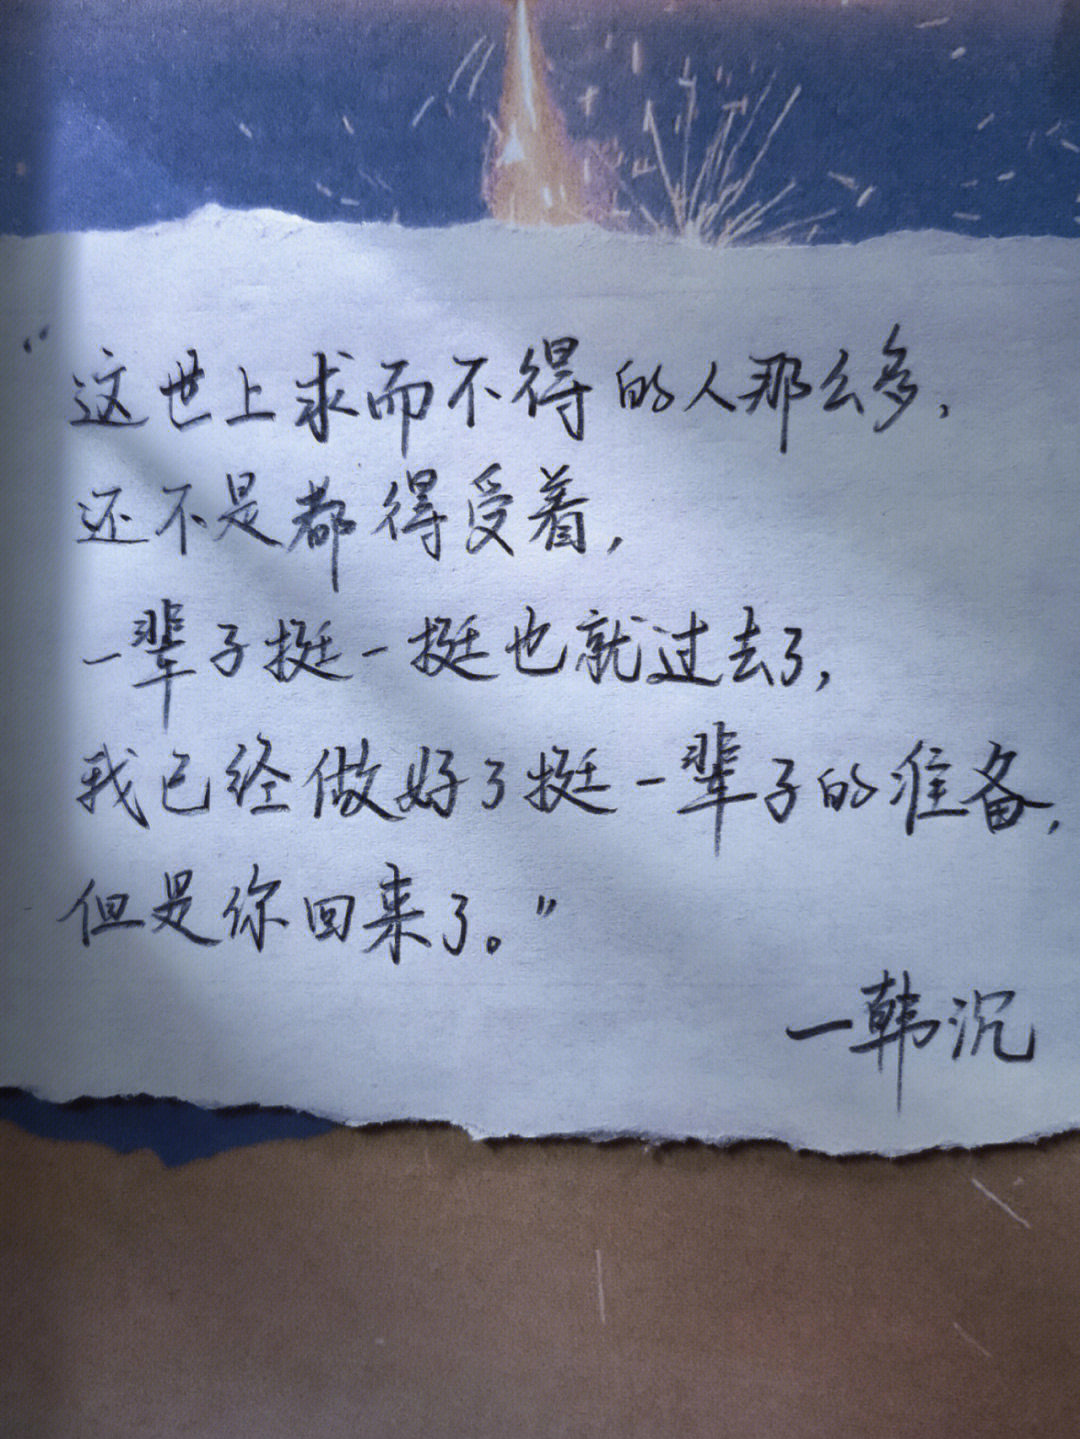 “这世上求而不得的人那么多，
还不是都得受着，
一辈子挺一挺也就过去了，
我已经做好了挺一辈子的准备，
但是你回来了。”
—韩沉